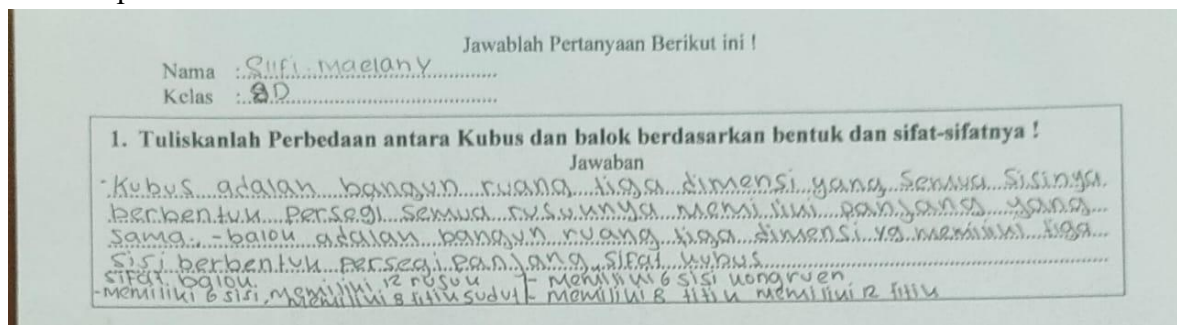 Jawablah Pertanyaan Berikut ini !
Nama : Sufi Maelany
Kelas : 8D
1. Tuliskanlah Perbedaan antara Kubus dan balok berdasarkan bentuk dan sifat-sifatnya !
Jawaban
- Kubus adalah bangun ruang tiga dimensi yang Semua Sisinya
berbentuk Persegi Semua rusuknya memiliki panjang yang
Sama. - balok adalah bangun ruang tiga dimensi yg memiliki tiga
Sisi berbentuk persegi panjang. Sifat kubus
Sifat balok. memiliki 12 rusuk - memiliki 6 sisi kongruen
- memiliki 6 sisi, memiliki 8 titik sudut - memiliki 8 titik memiliki 12 titik